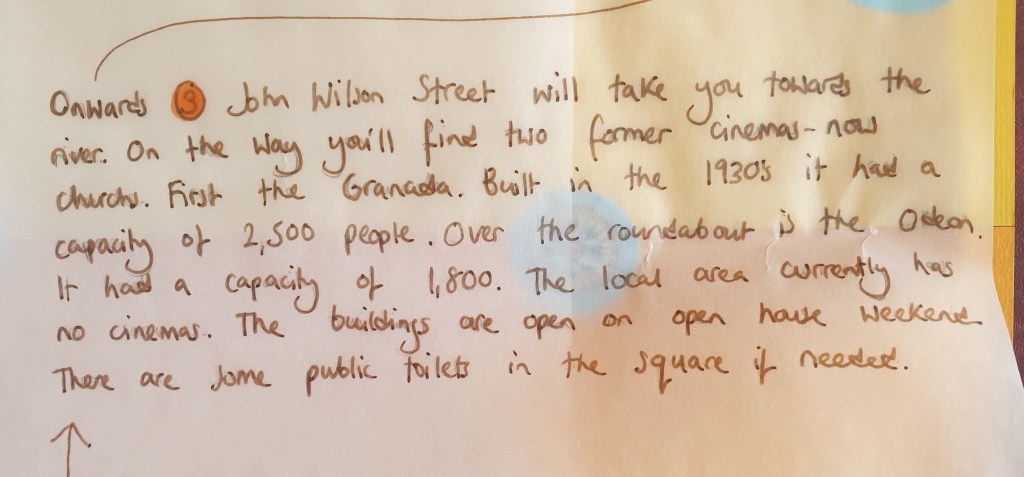 Onwards 3 John Wilson Street will take you towards the
river. On the way you'll find two former cinemas - now
churchs. First the Granada. Built in the 1930's it had a
capacity of 2,500 people. Over the roundabout is the Odeon.
It had a capacity of 1,800. The local area currently has
no cinemas. The buildings are open on open house weekend
There are some public toilets in the square if needed.